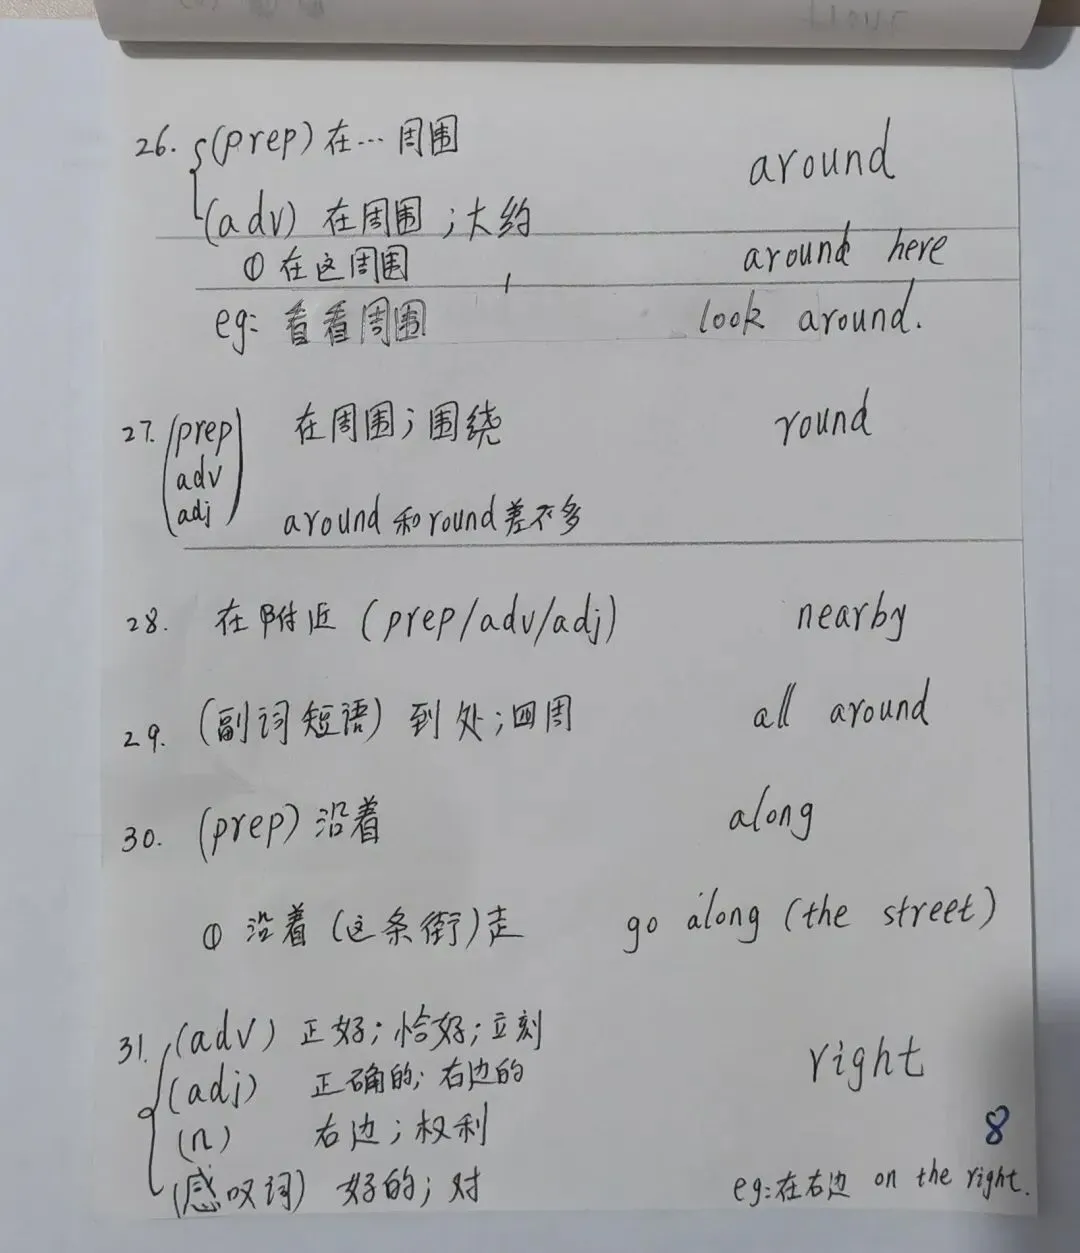 26. (prep) 在…周围 around
(adv) 在周围;大约
① 在这周围 around here
eg: 看看周围 look around.
27. (prep 在周围;围绕 round
adv
adj) around和round差不多
28. 在附近 (prep/adv/adj) nearby
29. (副词短语) 到处;四周 all around
30. (prep) 沿着 along
① 沿着(这条街)走 go along (the street)
31. (adv) 正好;恰好;立刻 right
(adj) 正确的;右边的
(n) 右边;权利
8
(感叹词) 好的;对 eg:在右边 on the right.